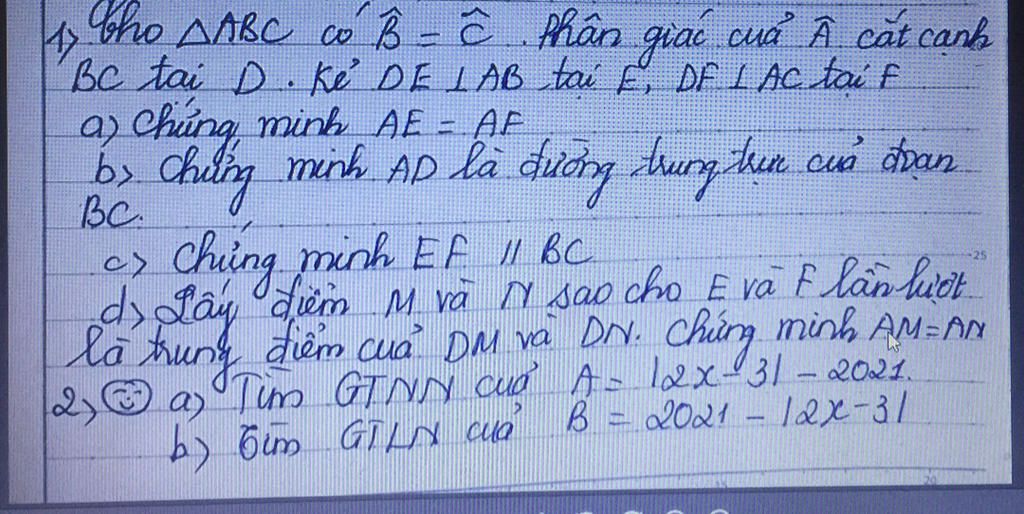 1) Cho △ABC có B̂ = Ĉ. Phân giác của Â cắt cạnh
BC tại D. Kẻ DE ⊥ AB tại E, DF ⊥ AC tại F
a) Chứng minh AE = AF
b) Chứng minh AD là đường trung trực của đoạn
BC.
c) Chứng minh EF // BC
d) Lấy điểm M và N sao cho E và F lần lượt
là trung điểm của DM và DN. Chứng minh AM = AN
2) a) Tìm GTNN của A = |2x - 3| - 2021.
b) Tìm GTLN của B = 2021 - |2x - 3|
25
15
20